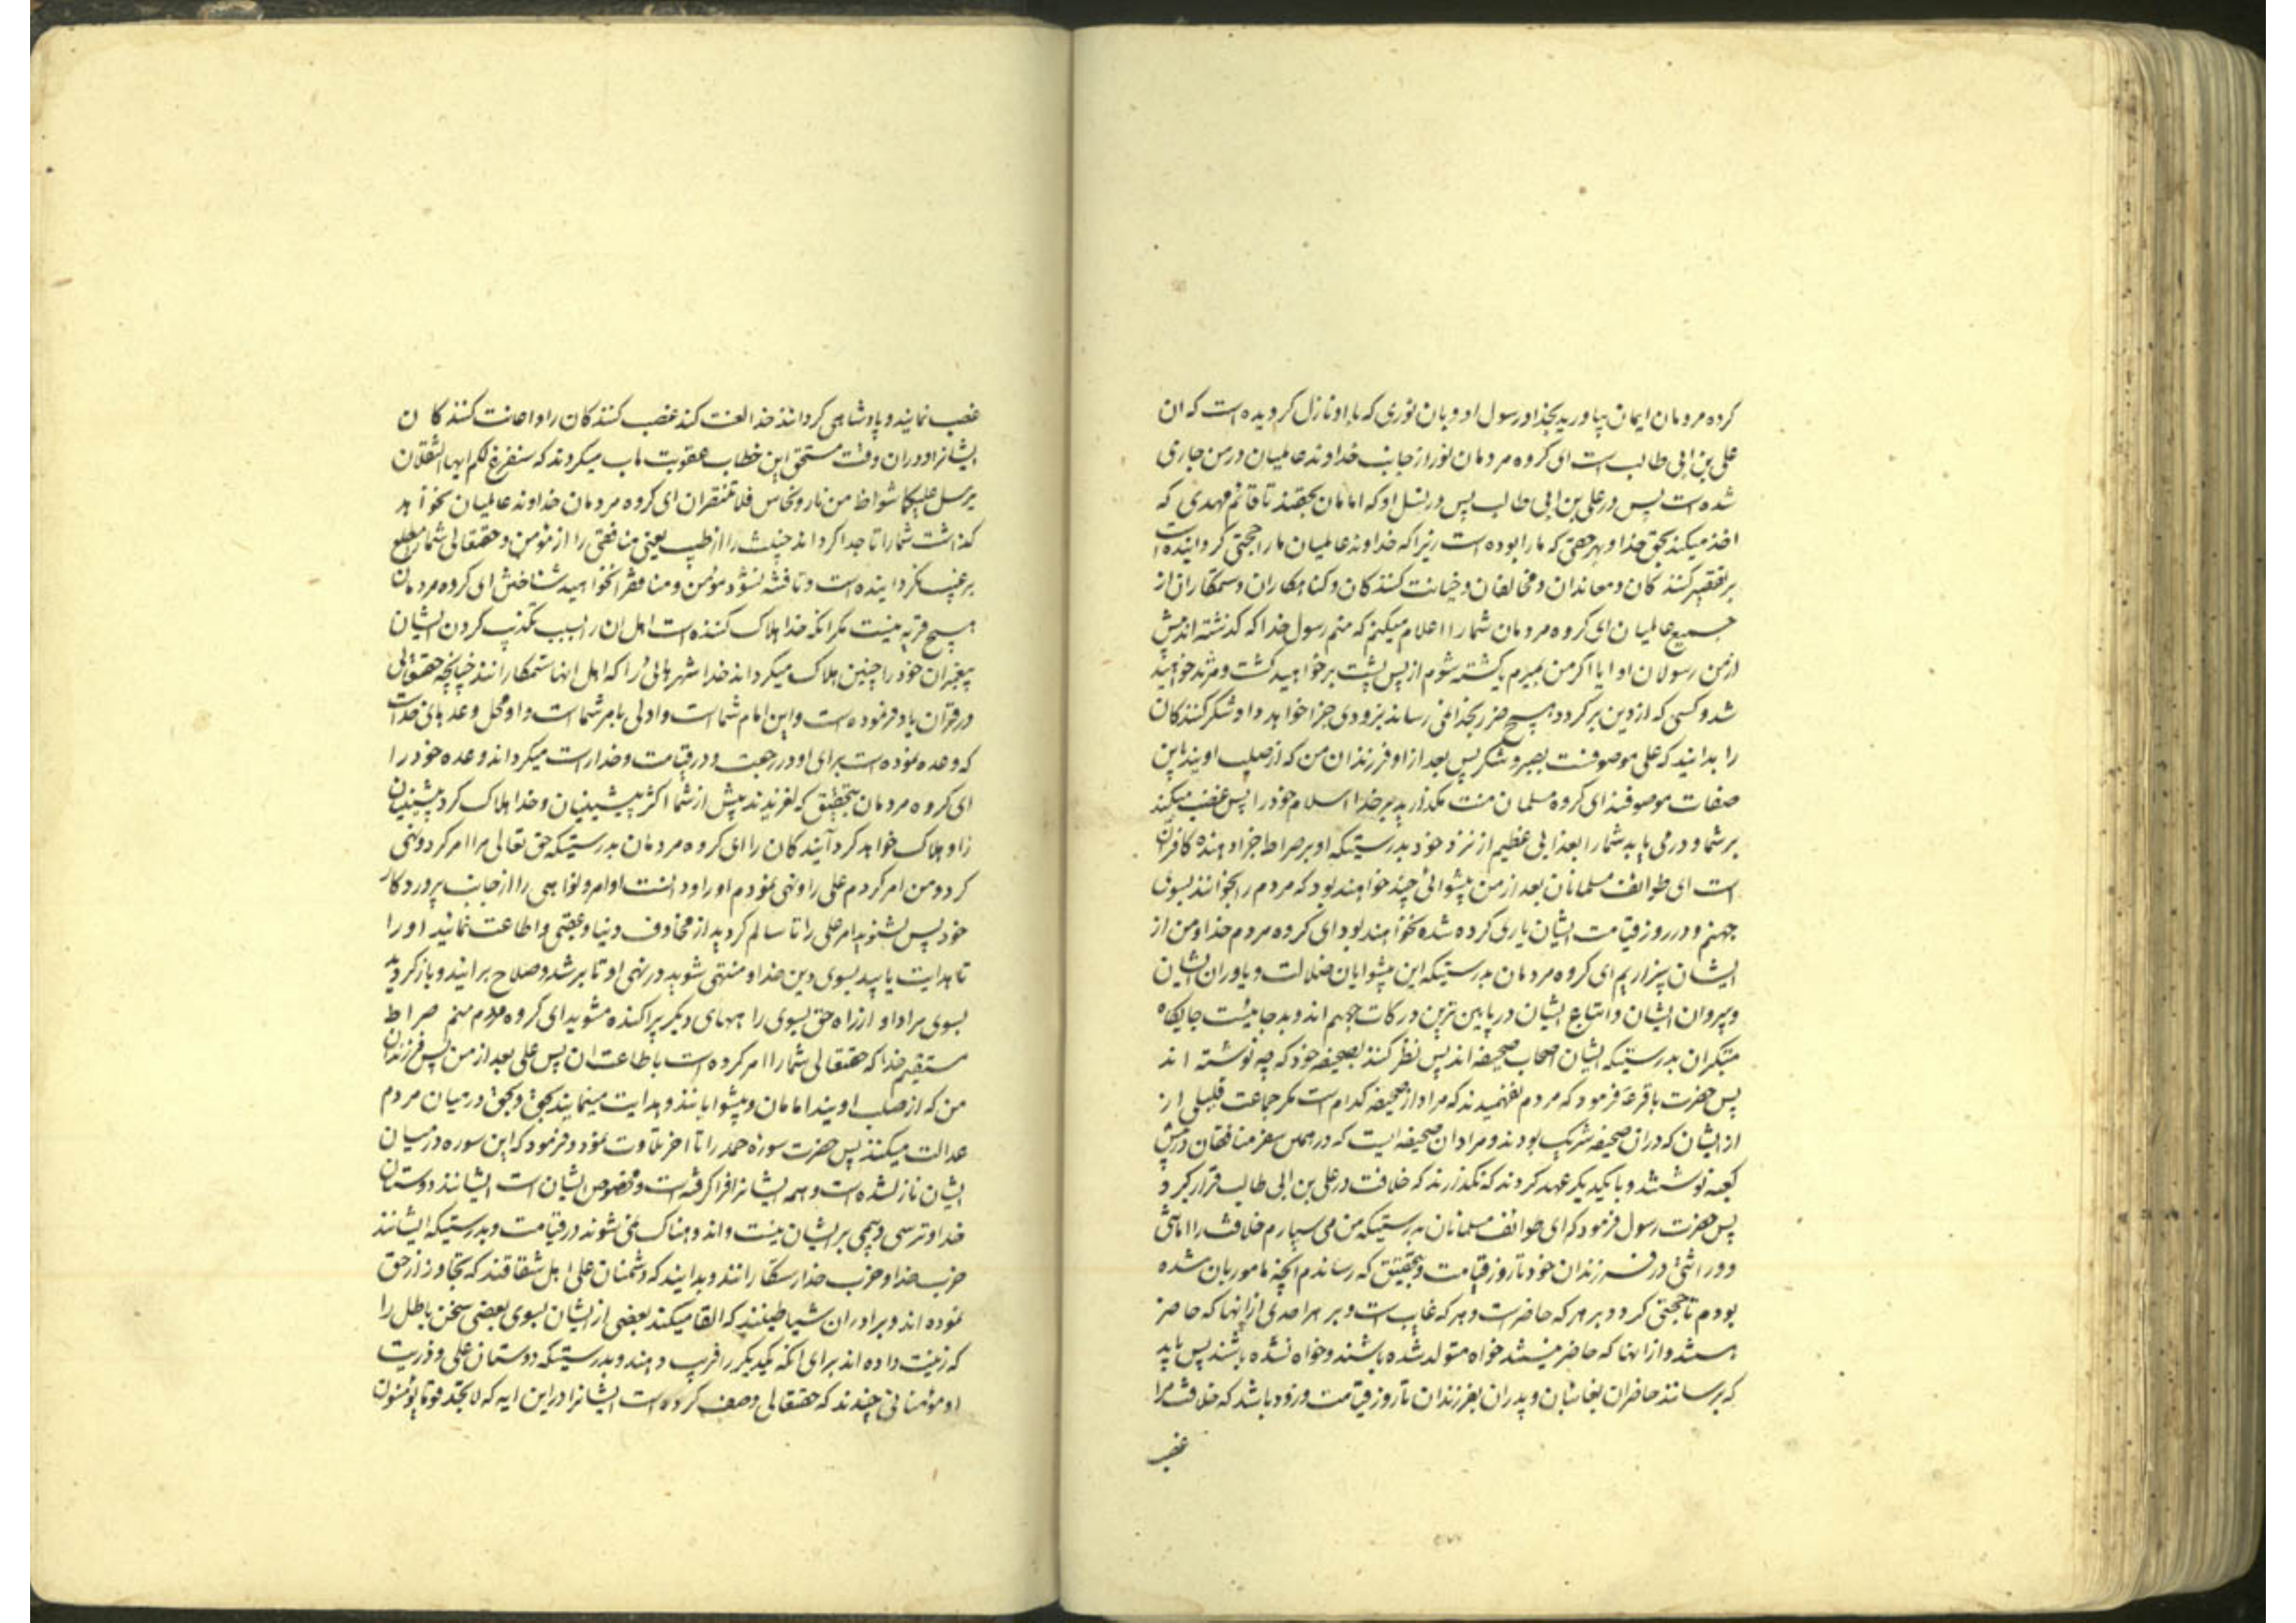 کرده مردمان ایمان بیاورید بخدا و رسول او و بان نوری که با او نازل کردیده است که ان
علی بن ابی طالب است ای کروه مردمان نور از جانب خداوند عالمیان در من جاری
شده است پس در علی بن ابی طالب پس در نسل او که امامان بحقند تا قائم مهدی که
اخذ میکند بحق خدا و بهر حقی که ما را بوده است زیرا که خداوند عالمیان ما را حجتی کردانیده است
بر تقصیر کنند کان و معاندان و مخالفان و خیانت کنند کان و کناهکاران و ستمکاران از
جمیع عالمیان ای کروه مردمان شما را اعلام میکنم که منم رسول خدا که کذشته اند پیش
از من رسولان او ایا اکر من بمیرم یا کشته شوم از پس پشت بر خواهید کشت و مرتد خواهید
شد و کسی که از دین بر کردد هیچ ضرر بخدا نمی رساند بزودی جزا خواهد داد شکر کنند کان
را بدانید که علی موصوفست بصبر و شکر پس بعد از او فرزندان من که از صلب اویند باین
صفات موصوفند ای کروه مسلمان منت مکذارید بر خدا اسلام خود را پس غضب میکند
بر شما و در می یابد شما را بعذابی عظیم از نزد خود بدرستیکه او بر صراط جزا دهنده کافران
است ای طوائف مسلمانان بعد از من پیشوائی چند خواهند بود که مردم را بخوانند بسوی
جهنم و در روز قیامت ایشان یاری کرده شده نخواهند بود ای کروه مردم خدا و من از
ایشان بیزاریم ای کروه مردمان بدرستیکه این پیشوایان ضلالت و یاوران ایشان
و پیروان ایشان و اتباع ایشان در پایین ترین درکات جهنم اند و بد جائیست جایکاه
متکبران بدرستیکه ایشان اصحاب صحیفه اند پس نظر کنند بصحیفه خود که چه نوشته اند
پس حضرت باقر ع فرمود که مردم نفهمیدند که مراد از صحیفه کدام است مکر جماعت قلیلی از
از ایشان که در ان صحیفه شریک بودند و مراد ان صحیفه ایست که در همین سفر منافقان در پیش
کعبه نوشتند و با یکدیکر عهد کردند که نکذارند که خلافت در علی بن ابی طالب قرار کیرد
پس حضرت رسول فرمود که ای طوائف مسلمانان بدرستیکه من می سپارم خلافت را امانتی
و وراثتی در فرزندان خود تا روز قیامت و بتحقیق که رساندم انچه مامور بان شده
بودم تا حجتی کردد بر هر که حاضر است و هر که غایب است و بر هر احدی از انها که حاضر
هستند و از انها که حاضر نیستند خواه متولد شده باشند و خواه نشده باشند پس باید
که برسانند حاضران بغائبان و پدران بفرزندان تا روز قیامت و زود باشد که خلافت مرا
غصب
غصب نمایند و پادشاهی کردانند خدا لعنت کند غصب کنند کان را و اعانت کنند کان
ایشانرا و در ان وقت مستحق این خطاب عقوبت ماب میکردند که سنفرغ لکم ایها الثقلان
یرسل علیکما شواظ من نار و نحاس فلا تنتصران ای کروه مردمان خداوند عالمیان نخواهد
کذاشت شما را تا جدا کرداند خبیث را از طیب یعنی منافق را از مؤمن و حقتعالی شما را مطلع
بر غیب نکردانیده است و تا فتنه نشود مؤمن و منافق را نخواهید شناختن ای کروه مردمان
هیچ قریه نیست مکر انکه خدا هلاک کننده است اهل ان را بسبب تکذیب کردن ایشان
پیغمبران خود را چنین هلاک میکرداند خدا شهرهائی را که اهل انها ستمکارانند چنانچه حقتعالی
در قران یاد فرموده است و این امام شماست و اولی بامر شماست و او محل وعدهای خداست
که وعده نموده است برای او در رجعت و در قیامت و خدا راست میکرداند وعده خود را
ای کروه مردمان بتحقیق که لغزیدند پیش از شما اکثر پیشینیان و خدا هلاک کرد پیشینیان
را و هلاک خواهد کرد آیند کان را ای کروه مردمان بدرستیکه حق تعالی مرا امر کرد و نهی
کرد و من امر کردم علی را و نهی نمودم او را و دانست اوامر و نواهی را از جانب پروردکار
خود پس بشنوید امر علی را تا سالم کردید از مخاوف دنیا و عقبی و اطاعت نمائید او را
تا هدایت یابید بسوی دین خدا و منتهی شوید در نهی او تا برشد و صلاح برایند و باز کردید
بسوی مراد او از راه حق بسوی راههای دیکر پراکنده مشوید ای کروه مردم منم صراط
مستقیم خدا که حقتعالی شما را امر کرده است باطاعت ان پس علی بعد از من پس فرزندان
من که از صلب اویند امامان و پیشوایانند و هدایت مینمایند بحق و بحق در میان مردم
عدالت میکنند پس حضرت سوره حمد را تا اخر تلاوت نمود و فرمود که این سوره در میان
ایشان نازل شده است و همه ایشانرا فرا کرفته است و مخصوص ایشان است ایشانند دوستان
خدا و ترسی و بیمی بر ایشان نیست و اندوهناک نمی شوند در قیامت و بدرستیکه ایشانند
حزب خدا و حزب خدا رستکارانند و بدانید که دشمنان علی اهل شقاقند که تجاوز از حق
نموده اند و برادران شیاطینند که القا میکند بعضی از ایشان بسوی بعضی سخن باطل را
که زینت داده اند برای انکه یکدیکر را فریب دهند و بدرستیکه دوستان علی و ذریت
او مؤمنانی چندند که حقتعالی وصف کرده است ایشانرا در این ایه که لا تجد قوما یؤمنون